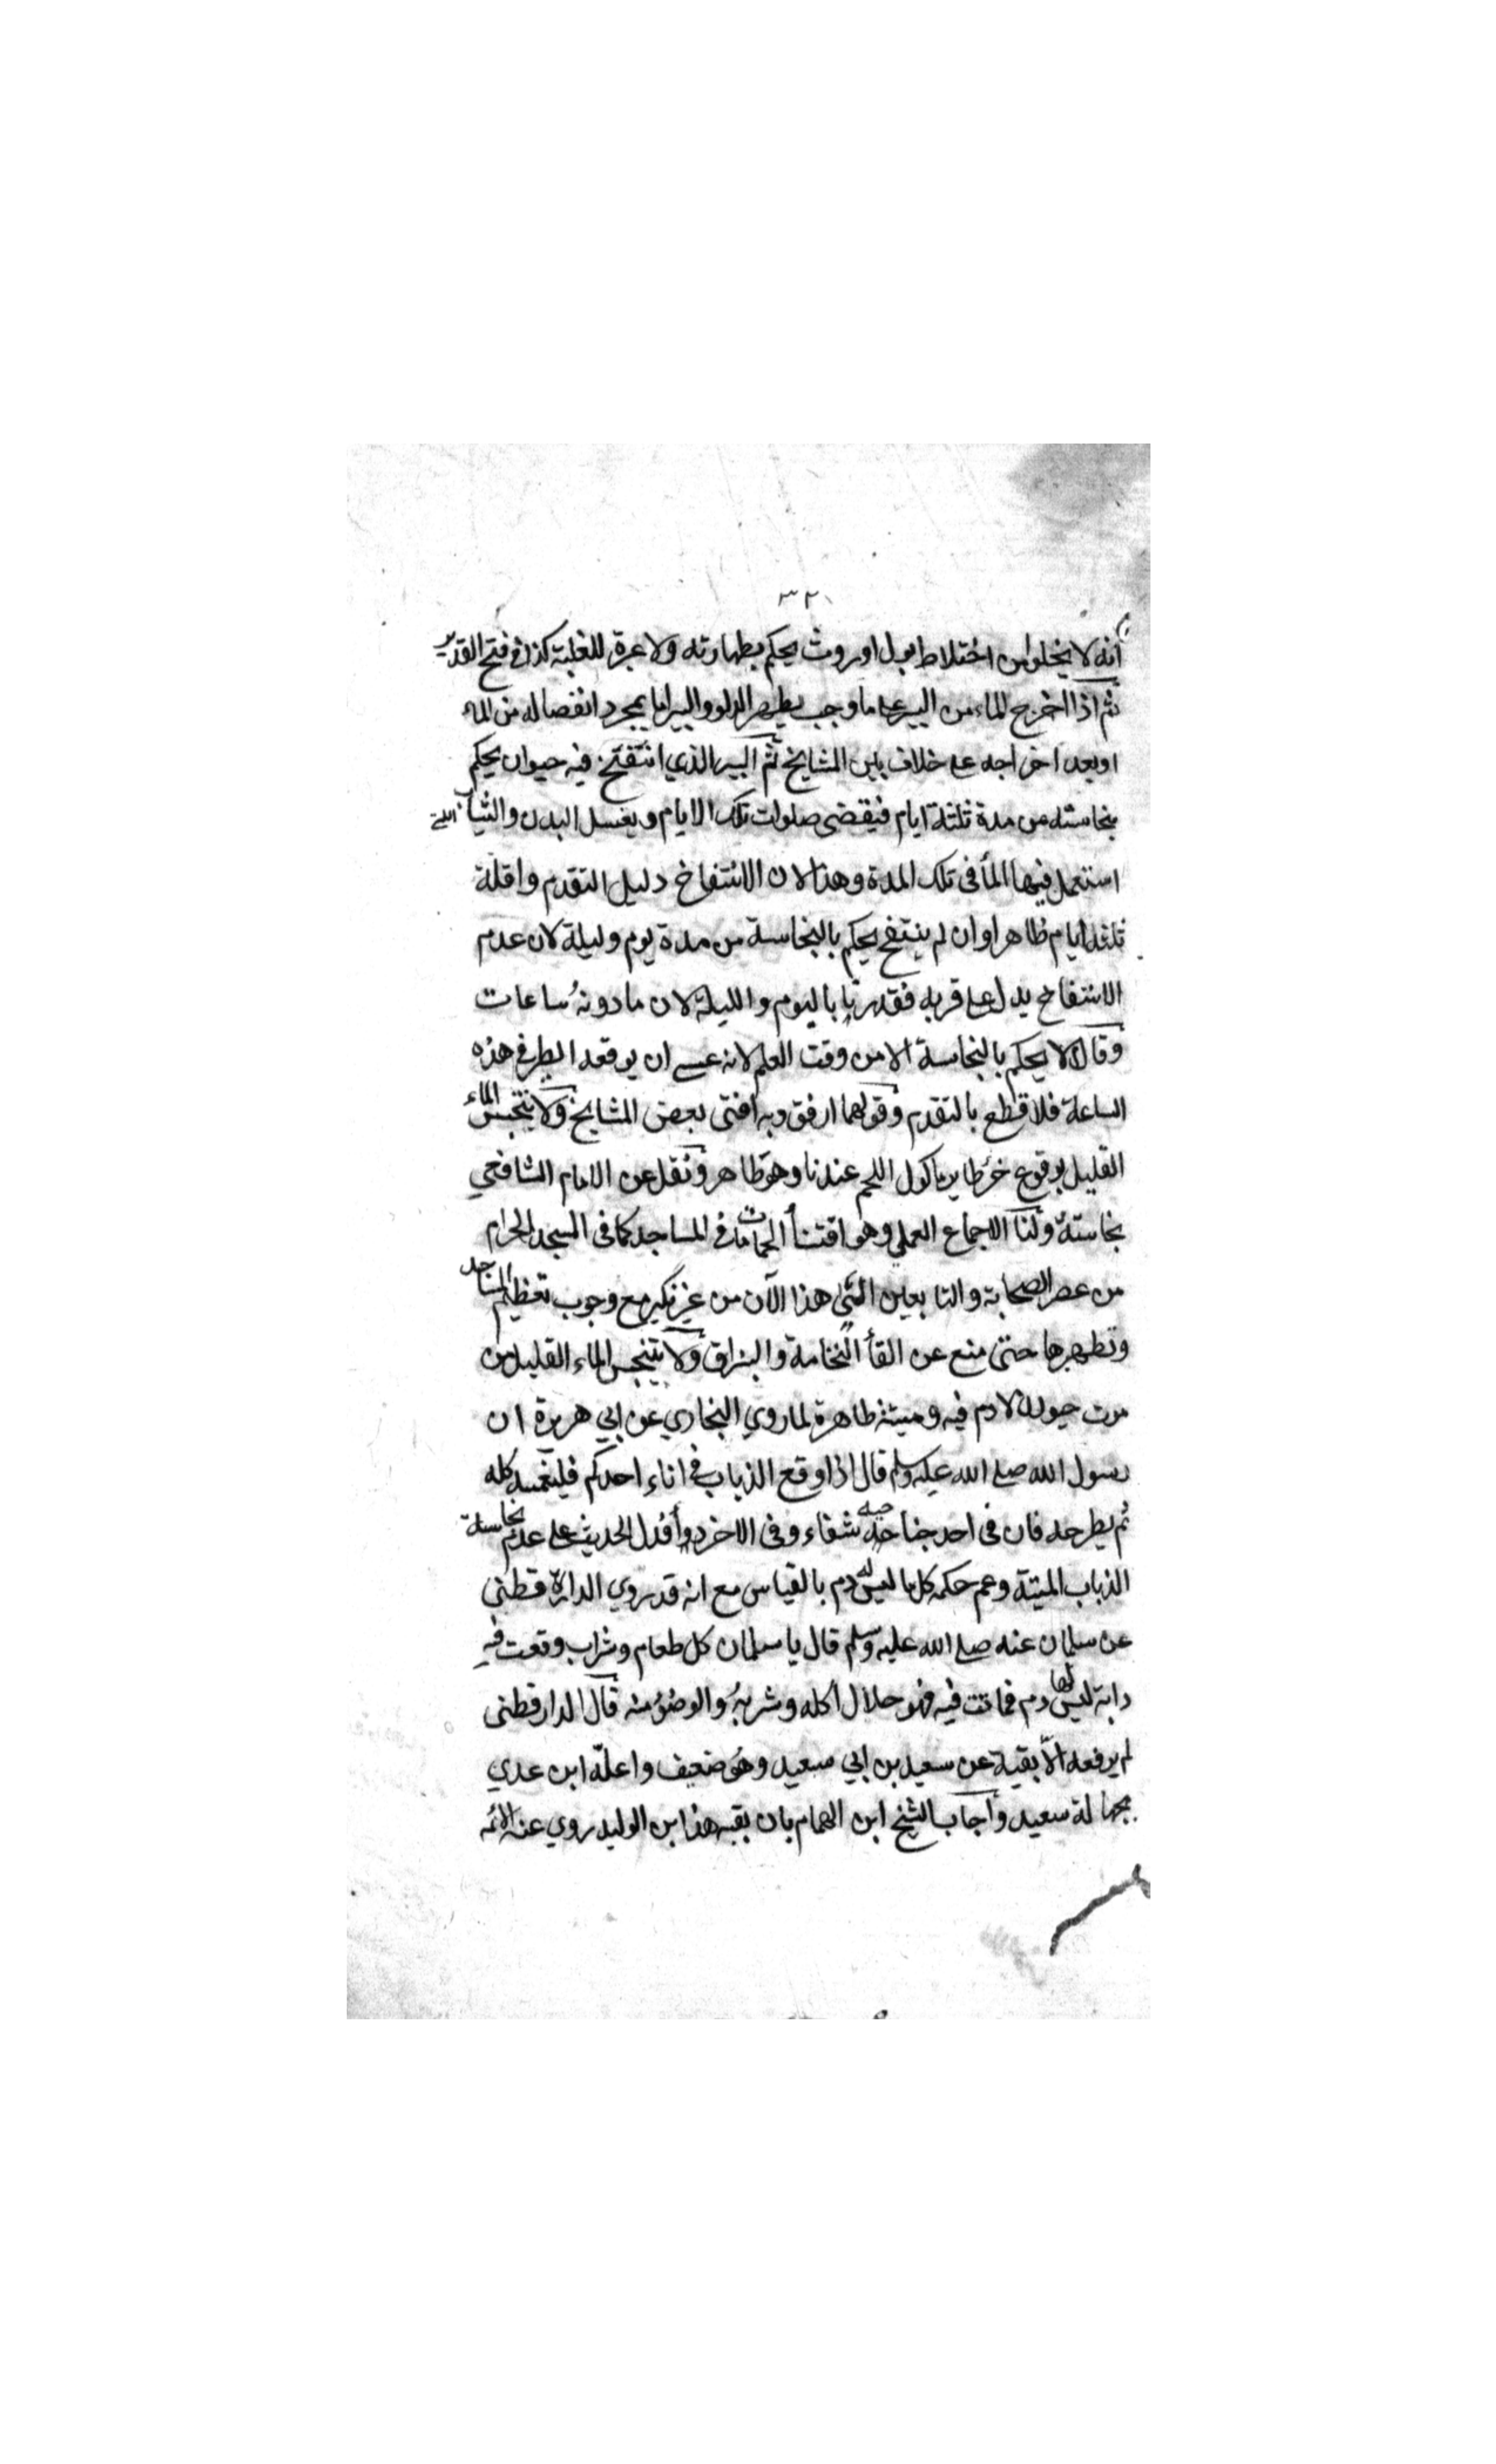 ٣٢
أنه لا يخلو من اختلاط بول او روث يحكم بطهارته ولا عبرة للغلبة كذا في فتح القدير
ثم اذا اخرج الماء من البير على ما وجب يطهر الدلو والبير اما بمجرد انفصاله من الماء
او بعد اخراجه على خلاف بين المشايخ ثم البير الذي انتفخ فيه حيوان يحكم
بنجاسته من مدة ثلثة ايام فيقضى صلوات تلك الايام ويغسل البدن والثياب التي
استعمل فيها الماء في تلك المدة وهذا لان الانتفاخ دليل التقدم واقله
ثلثة ايام ظاهرا وان لم ينتفخ يحكم بالنجاسة من مدة يوم وليلة لان عدم
الانتفاخ يدل على قربه فقدرنا باليوم والليلة لان ما دونه ساعات
وقالا لا يحكم بالنجاسة الا من وقت العلم لانه عسى ان يوقعه الطير في هذه
الساعة فلا قطع بالتقدم وقولهما ارفق وبه افتى بعض المشايخ ولا يتنجس الماء
القليل بوقوع خرء طاير ماكول اللحم عندنا وهو طاهر ونقل عن الامام الشافعي
نجاسته ولنا الاجماع العملي وهو اقتناء الحمامات في المساجد كما في المسجد الحرام
من عصر الصحابة والتابعين الى هذا الآن من غير نكير مع وجوب تعظيم المساجد
وتطهيرها حتى منع عن القاء النخامة والبزاق ولا يتنجس الماء القليل من
موت حيوان لا دم فيه وميتته طاهرة لما روي البخاري عن ابي هريرة ان
رسول الله صلى الله عليه وسلم قال اذا وقع الذباب في اناء احدكم فليغمسه كله
ثم يطرحه فان في احد جناحيه شفاء وفى الاخر داء فدل الحديث على عدم نجاسة
الذباب الميتة وعم حكمه كل ما ليس له دم بالقياس مع انه قد روي الدارقطنى
عن سلمان عنه صلى الله عليه وسلم قال يا سلمان كل طعام وشراب وقعت فيه
دابة ليس لها دم فماتت فيه فهو حلال اكله وشربه والوضؤ منه قال الدارقطنى
لم يرفعه الا بقية عن سعيد بن ابي سعيد وهو ضعيف واعله ابن عدي
بجهالة سعيد وأجاب الشيخ ابن الهمام بان بقية هذا ابن الوليد روي عنه الائمه